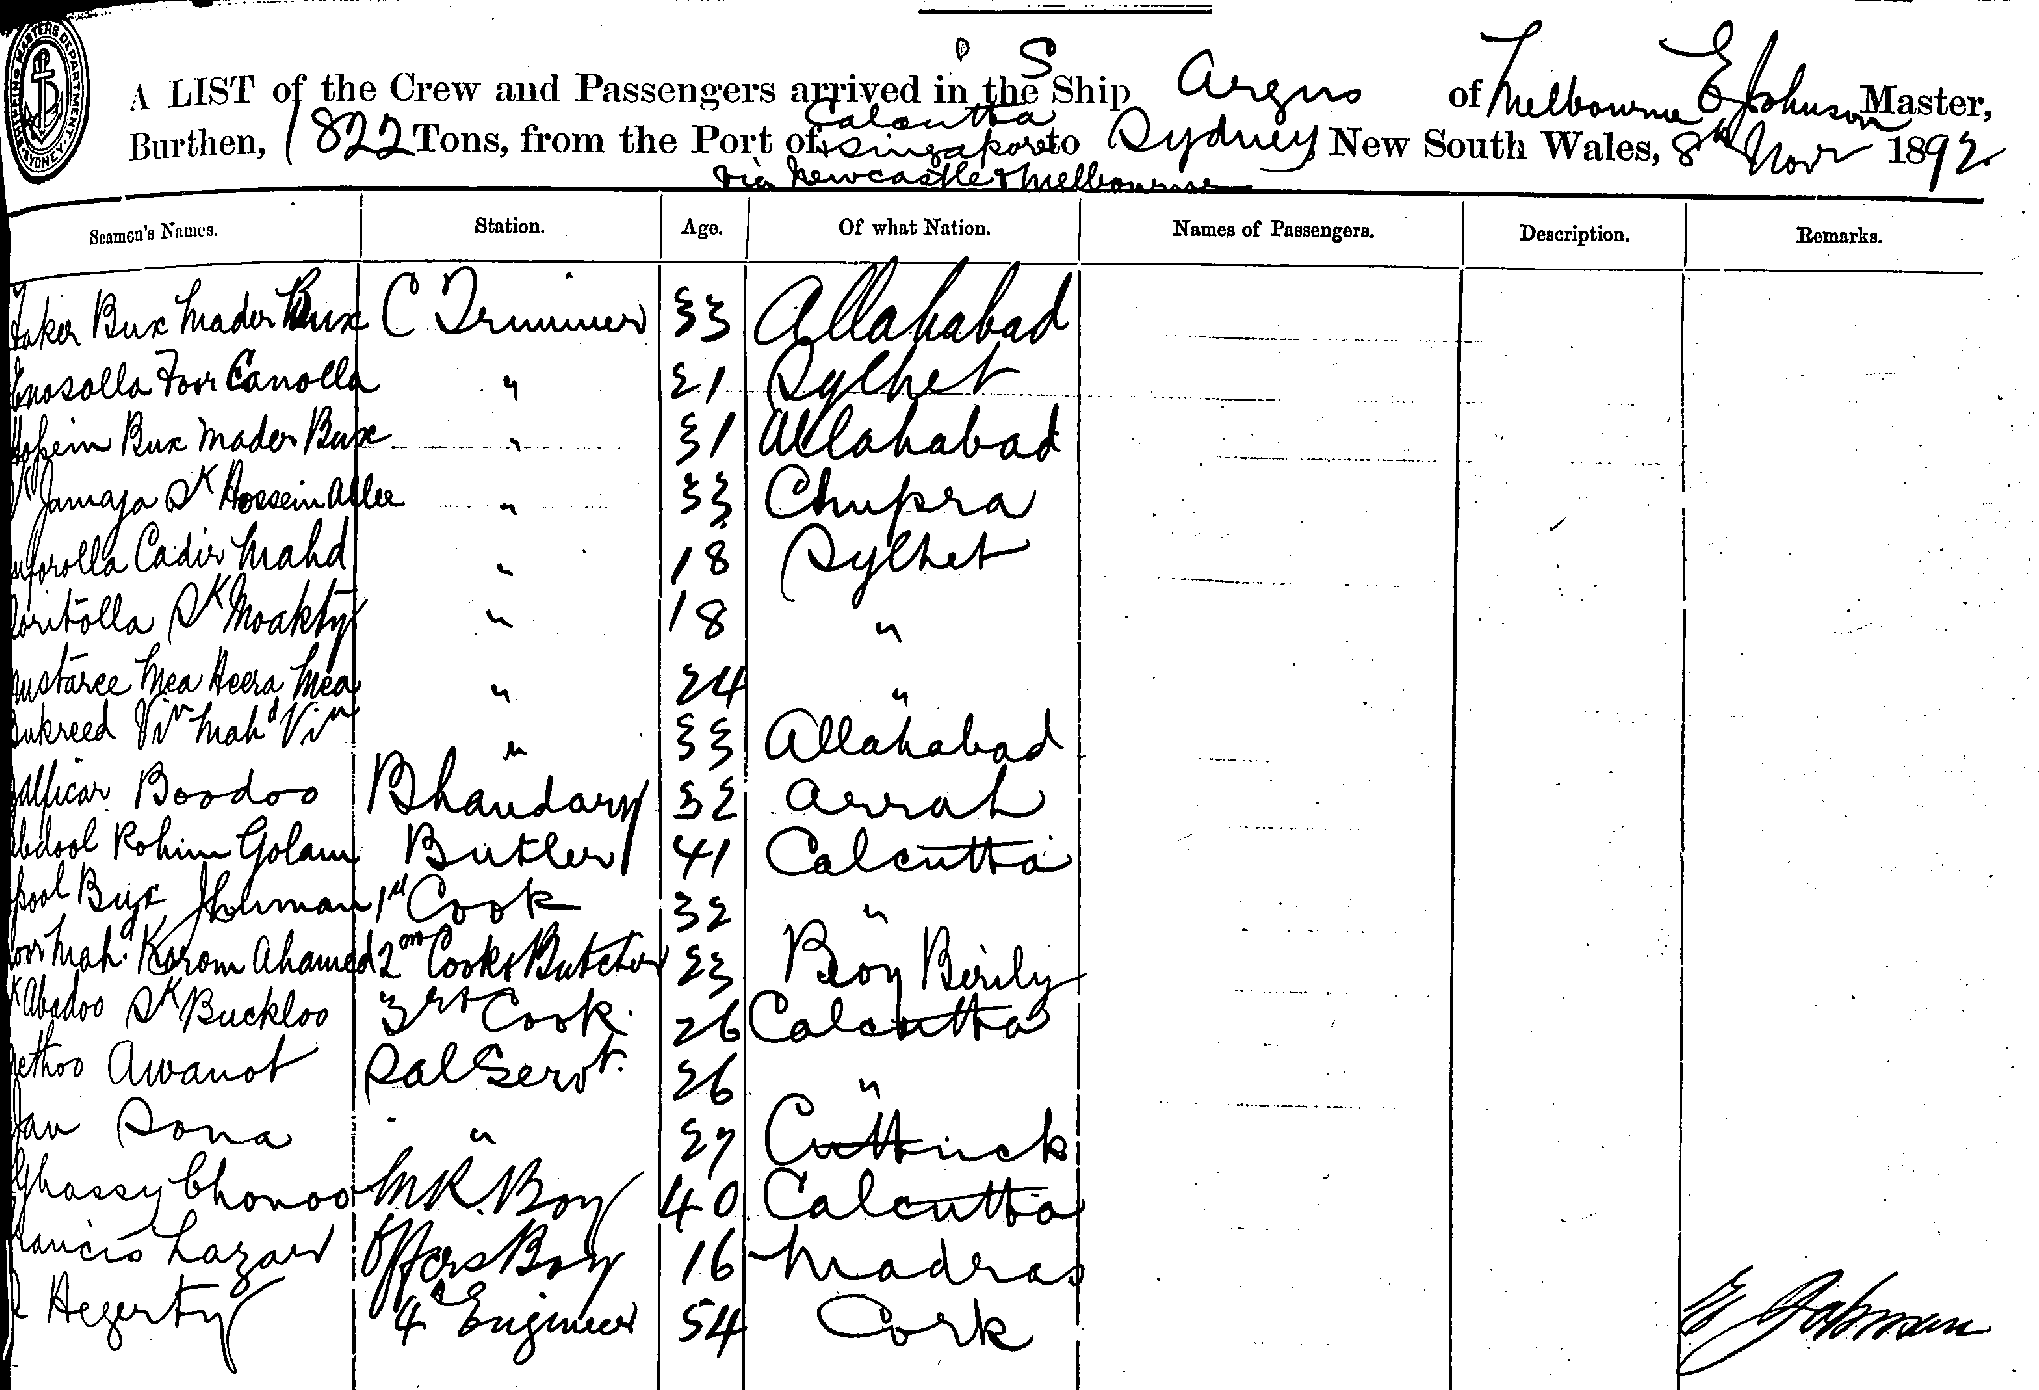 SHIPPING MASTERS DEPARTMENT SYDNEY
A LIST of the Crew and Passengers arrived in the S Ship Argus of Melbourne E Johnson Master,
Burthen, 1822 Tons, from the Port of Calcutta & Singapore to Sydney, New South Wales, 8th Novr 1892
via Newcastle & Melbourne
Seamen's Names. Station. Age. Of what Nation. Names of Passengers. Description. Remarks.
Faker Bux Mader Bux C Trimmer 33 Allahabad
Enosolla Foor Canolla " 21 Sylhet
Hosein Bux Mader Bux " 31 Allahabad
Sk Jamaja Sk Hossein Allee " 33 Chupra
Cadir Mahd " 18 Sylhet
Sk Moakty " 18 "
Mea Heera Mea " 24 "
Mahd " 33 Allahabad
Boodoo Bhandary 32 Arrah
Abdool Rohim Golam Butler 41 Calcutta
Bux Jhuman 1st Cook 32 "
Mah. Korom Ahamed 2nd Cook & Butcher 23 Beoy Berily
Sk Abadoo Sk Buckloo 3rd Cook 26 Calcutta
Awanot Sal Servt. 26 "
Jan Sona " 27 Cuttuck
Ghassy Chonoo M R. Boy 40 Calcutta
Francis Lazard Offers Boy 16 Madras
Hegerty 4th Engineer 54 Cork
E Johnson